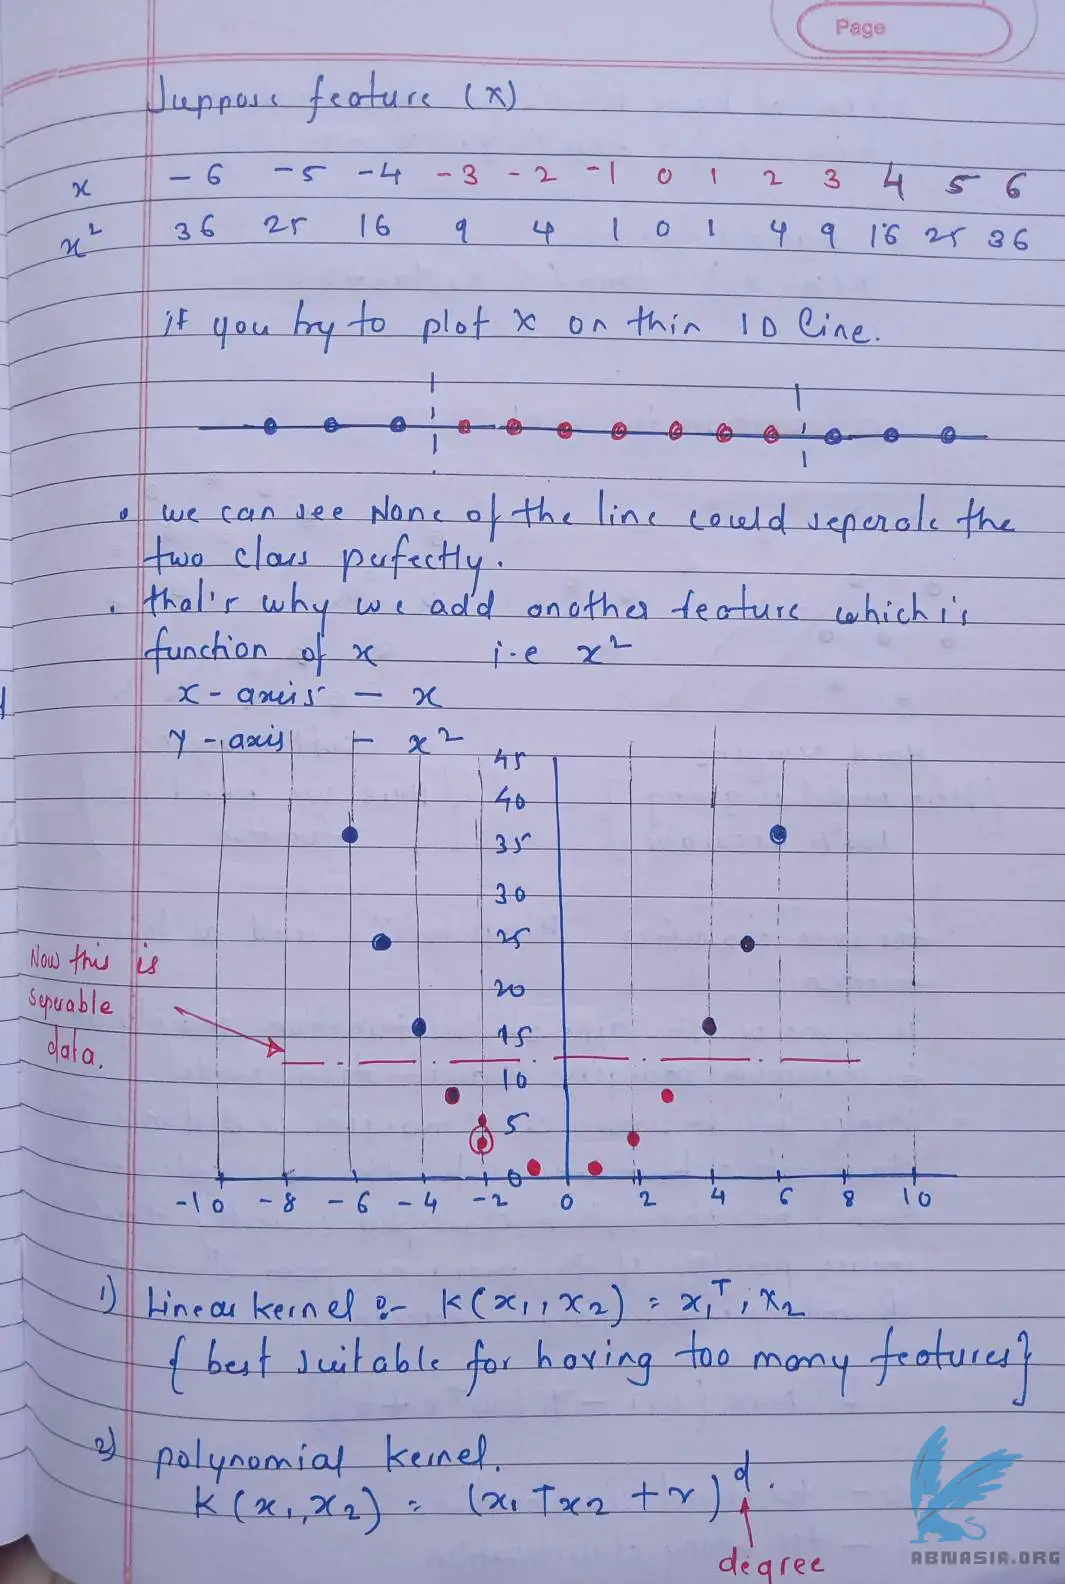 Page
Suppose feature (x)
x -6 -5 -4 -3 -2 -1 0 1 2 3 4 5 6
x² 36 25 16 9 4 1 0 1 4 9 16 25 36
if you try to plot x on thin 1D line.
• we can see None of the line could seperate the
two class perfectly.
• that's why we add another feature which is
function of x i.e x²
x-axis - x
Y-axis - x²
45
40
35
30
25
20
15
10
5
0
Now this is
separable
data.
-10 -8 -6 -4 -2 0 2 4 6 8 10
1) Linear kernel :- K(x₁, x₂) = x₁ᵀ, x₂
{ best suitable for having too many features}
2) polynomial kernel.
K(x₁, x₂) = (x₁ᵀx₂ + r)ᵈ.
degree
ABNASIA.ORG